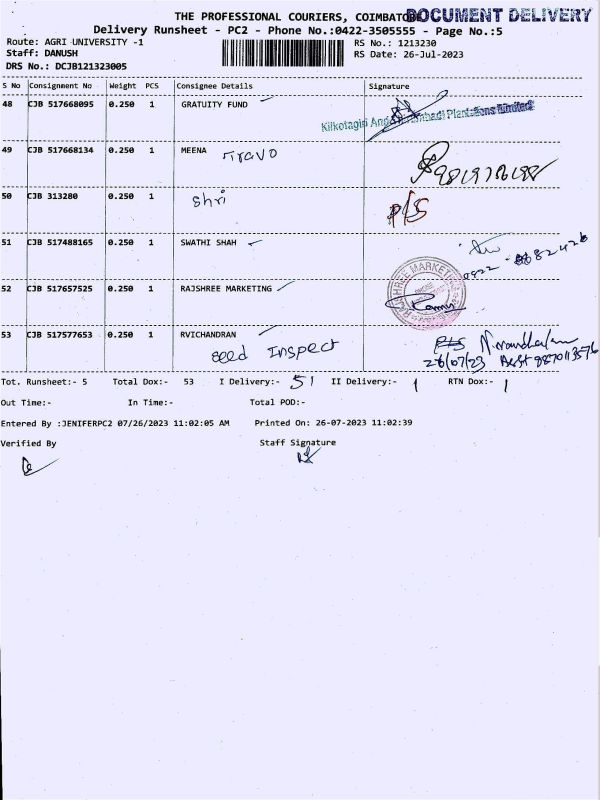 THE PROFESSIONAL COURIERS, COIMBATORE
DOCUMENT DELIVERY
Delivery Runsheet - PC2 - Phone No.:0422-3505555 - Page No.:5
Route: AGRI UNIVERSITY -1
RS No.: 1213230
Staff: DANUSH
RS Date: 26-Jul-2023
DRS No.: DCJB121323005
S No Consignment No Weight PCS Consignee Details Signature
48 CJB 517668095 0.250 1 GRATUITY FUND
Plantations Limited
49 CJB 517668134 0.250 1 MEENA
50 CJB 313280 0.250 1 Shri
P/S
51 CJB 517488165 0.250 1 SWATHI SHAH
52 CJB 517657525 0.250 1 RAJSHREE MARKETING
RAJSHREE MARKETING
53 CJB 517577653 0.250 1 RVICHANDRAN
seed Inspect
26/07/23
Tot. Runsheet:- 5 Total Dox:- 53 I Delivery:- 51 II Delivery:- 1 RTN Dox:- 1
Out Time:- In Time:- Total POD:-
Entered By :JENIFERPC2 07/26/2023 11:02:05 AM Printed On: 26-07-2023 11:02:39
Verified By Staff Signature